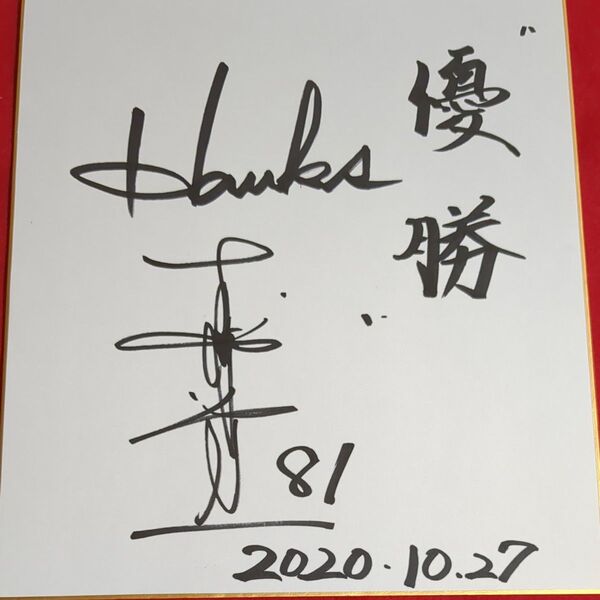 〝優勝〟
Hawks
81
2020.10.27